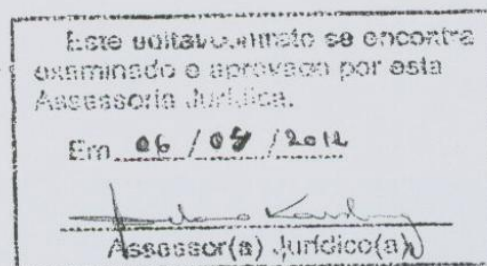 Este edital/contrato se encontra
examinado e aprovado por esta
Assessoria Jurídica.
Em 06 / 07 / 2012
Assessor(a) Jurídico(a)